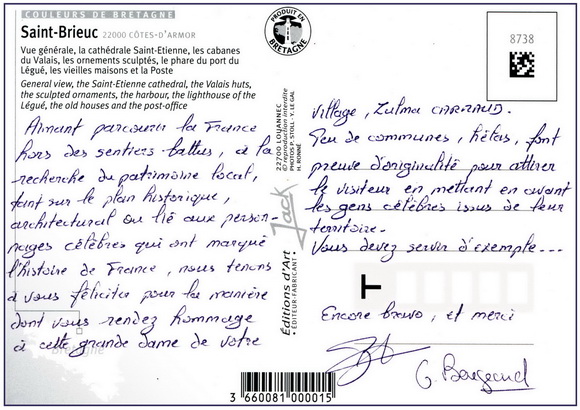 COULEURS DE BRETAGNE
Saint-Brieuc 22000 CÔTES-D'ARMOR
Vue générale, la cathédrale Saint-Etienne, les cabanes
du Valais, les ornements sculptés, le phare du port du
Légué, les vieilles maisons et la Poste
General view, the Saint-Etienne cathedral, the Valais huts,
the sculpted ornaments, the harbour, the lighthouse of the
Légué, the old houses and the post-office
Aimant parcourir la France
hors des sentiers battus, à la
recherche du patrimoine local,
tant sur le plan historique,
architectural ou lié aux person-
nages célèbres qui ont marqué
l'histoire de France, nous tenons
à vous féliciter pour la manière
dont vous rendez hommage
à cette grande dame de votre
Bretagne
PRODUIT EN
BRETAGNE
22700 LOUANNEC
Reproduction interdite
PHOTOS P. STOLL - Y. LE GAL
H. RONNÉ
Jack
Éditions d'Art
ÉDITEUR-FABRICANT
8738
village, Zulma CARRAUD.
Peu de communes, hélas, font
preuve d'originalité pour attirer
le visiteur en mettant en avant
les gens célèbres issus de leur
territoire.
Vous devez servir d'exemple...
T
Encore bravo, et merci
3 660081 000015